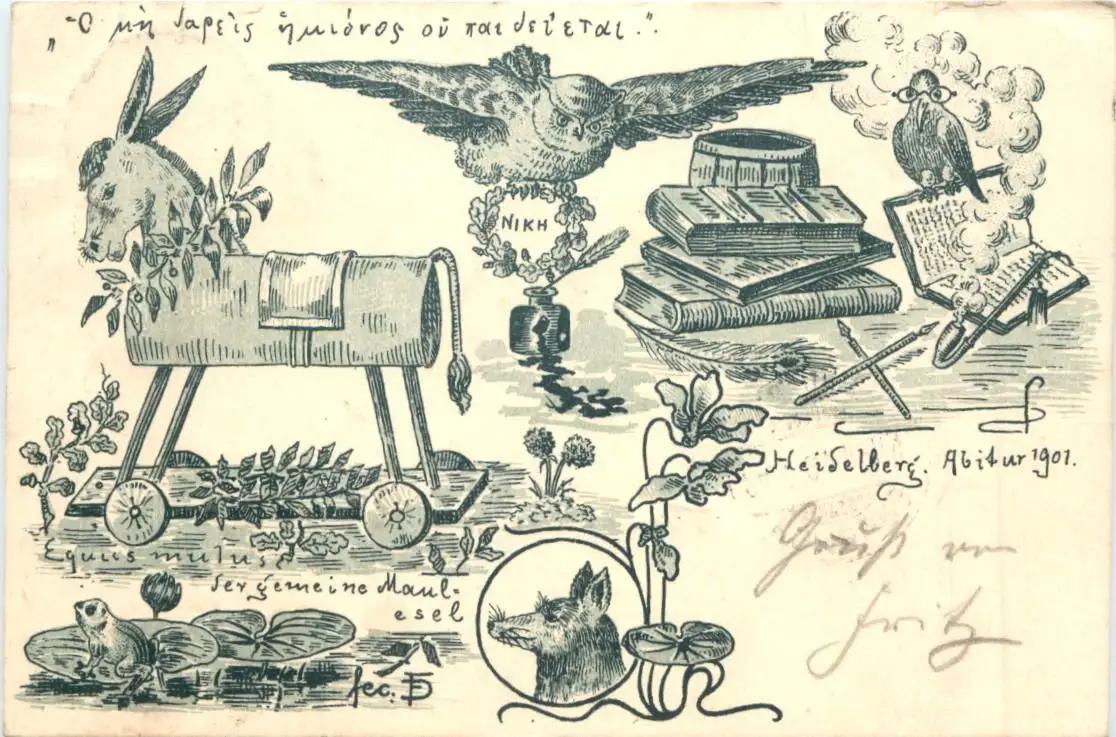 „Ὁ μὴ δαρεὶς ἡμιόνος οὐ παιδεύεται."
ΝΙΚΗ
Heidelberg. Abitur 1901.
Equus mulus,
der gemeine Maul-
esel
fec.
Gruß von
Fritz